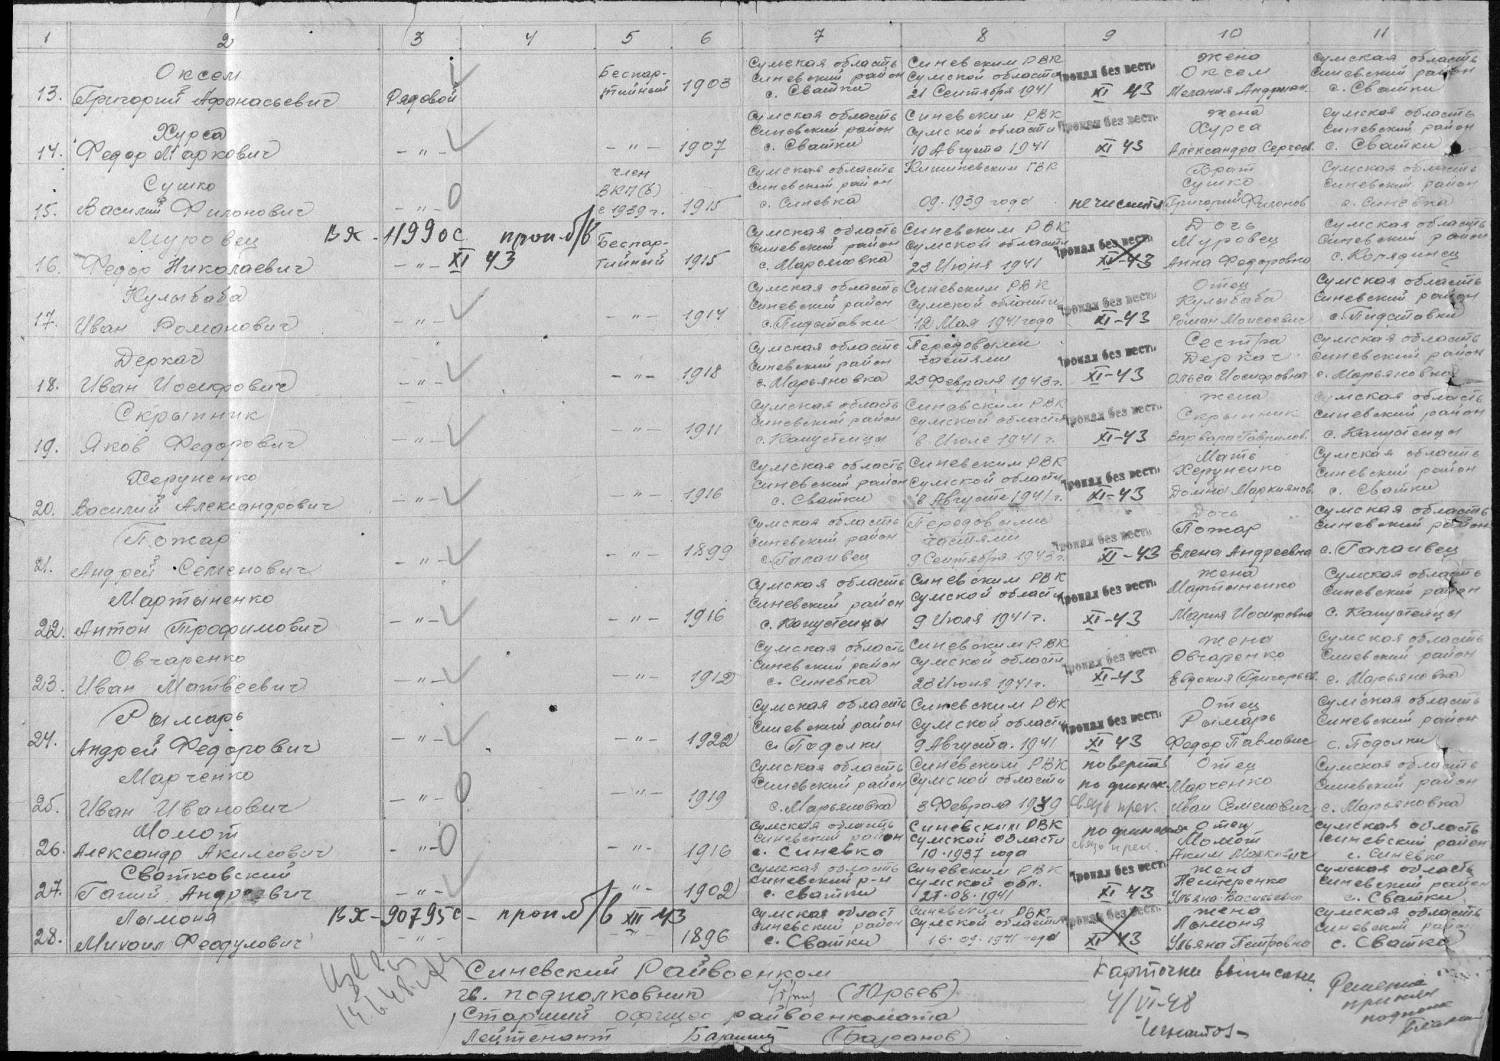 1 2 3 4 5 6 7 8 9 10 11
13. Оксем Григорий Афанасьевич Рядовой Беспартийный 1903 Сумская область Синевский район с. Сватки Синевским РВК Сумской области 21 Сентября 1941 Пропал без вести XI 43 жена Оксем Мелания Андриан. Сумская область Синевский район с. Сватки
14. Хурса Федор Маркович – " – – " – 1907 Сумская область Синевский район с. Сватки Синевским РВК Сумской области 10 Августа 1941 Пропал без вести XI 43 жена Хурса Александра Сергеев. Сумская область Синевский район с. Сватки
15. Сушко Василий Филонович – " – член ВКП(б) с 1939 г. 1915 Сумская область Синевский район с. Синевка Кишиневским ГВК 09.1939 года Брат Сушко Григорий Филонов Сумская область Синевский район с. Синевка
16. Муровец Федор Николаевич Вх-11990с проп. б/в XI 43 – " – Беспартийный 1915 Сумская область Синевский район с. Марьяновка Синевским РВК Сумской области 23 Июня 1941 Пропал без вести XI-43 Дочь Муровец Анна Федоровна Сумская область Синевский район с. Корядинец
17. Кулыбаба Иван Романович – " – – " – 1914 Сумская область Синевский район с. Пидставки Синевским РВК Сумской области 12 Мая 1941 года Пропал без вести XI-43 Отец Кулыбаба Роман Моисеевич Сумская область Синевский район с. Пидставки
18. Деркач Иван Иосифович – " – – " – 1918 Сумская область Синевский район с. Марьяновка Передовыми частями 23 Февраля 1943 г. Пропал без вести XI-43 Сестра Деркач Ольга Иосифовна Сумская область Синевский район с. Марьяновка
19. Скрыпник Яков Федорович – " – – " – 1911 Сумская область Синевский район с. Капустенцы Синевским РВК Сумской области в Июле 1941 г. Пропал без вести XI-43 жена Скрыпник Варвара Гаврилов. Сумская область Синевский район с. Капустенцы
20. Херуненко Василий Александрович – " – – " – 1916 Сумская область Синевский район с. Сватки Синевским РВК Сумской области в Августе 1941 г. Пропал без вести XI-43 Мать Херуненко Домна Маркиянов. Сумская область Синевский район с. Сватки
21. Пожар Андрей Семенович – " – – " – 1899 Сумская область Синевский район Передовыми частями 9 Сентября 1943 г. Пропал без вести XI-43 Дочь Пожар Елена Андреевна Сумская область Синевский район
22. Мартыненко Антон Трофимович – " – – " – 1916 Сумская область Синевский район с. Капустенцы Синевским РВК Сумской области 9 Июля 1941 г. Пропал без вести XI-43 жена Мартыненко Мария Иосифовна Сумская область Синевский район с. Капустенцы
23. Овчаренко Иван Матвеевич – " – – " – 1912 Сумская область Синевский район с. Синевка Синевским РВК Сумской области 23 Июля 1941 г. Пропал без вести XI-43 жена Овчаренко Евдокия Григорьев. Сумская область Синевский район с. Марьяновка
24. Рымарь Андрей Федорович – " – – " – 1922 Сумская область Синевский район с. Подолки Синевским РВК Сумской области 9 Августа 1941 Пропал без вести XI 43 Отец Рымарь Федор Павлович Сумская область Синевский район с. Подолки
25. Марченко Иван Иванович – " – – " – 1919 Сумская область Синевский район с. Марьяновка Синевским РВК Сумской области 3 Февраля 1939 связь прек. Отец Марченко Иван Семенович Сумская область Синевский район с. Марьяновка
26. Момот Александр Акимович – " – – " – 1916 Сумская область Синевский район с. Синевка Синевским РВК Сумской области 10.1937 года связь прек. Отец Момот Аким Сумская область Синевский район с. Синевка
27. Сватковский Андреевич – " – – " – 1902 Сумская область Синевский р-н с. Сватки Синевским РВК Сумской обл. 21-08-1941 Пропал без вести XI 43 жена Нестеренко Ульяна Васильевна Сумская область Синевский район с. Сватки
28. Лымоня Михаил Феодулович Вх-90795с- проп. б/в XII 43 – " – – " – 1896 Сумская област Синевский район с. Сватки Синевским РВК Сумской области 16.09.1941 года Пропал без вести XI 43 жена Лымоня Ульяна Петровна Сумская область Синевский район с. Сватка
Синевский Райвоенком
гв. подполковник (Юрьев)
Старший офицер райвоенкомата
Лейтенант
Карточки выписаны
4/VI-48